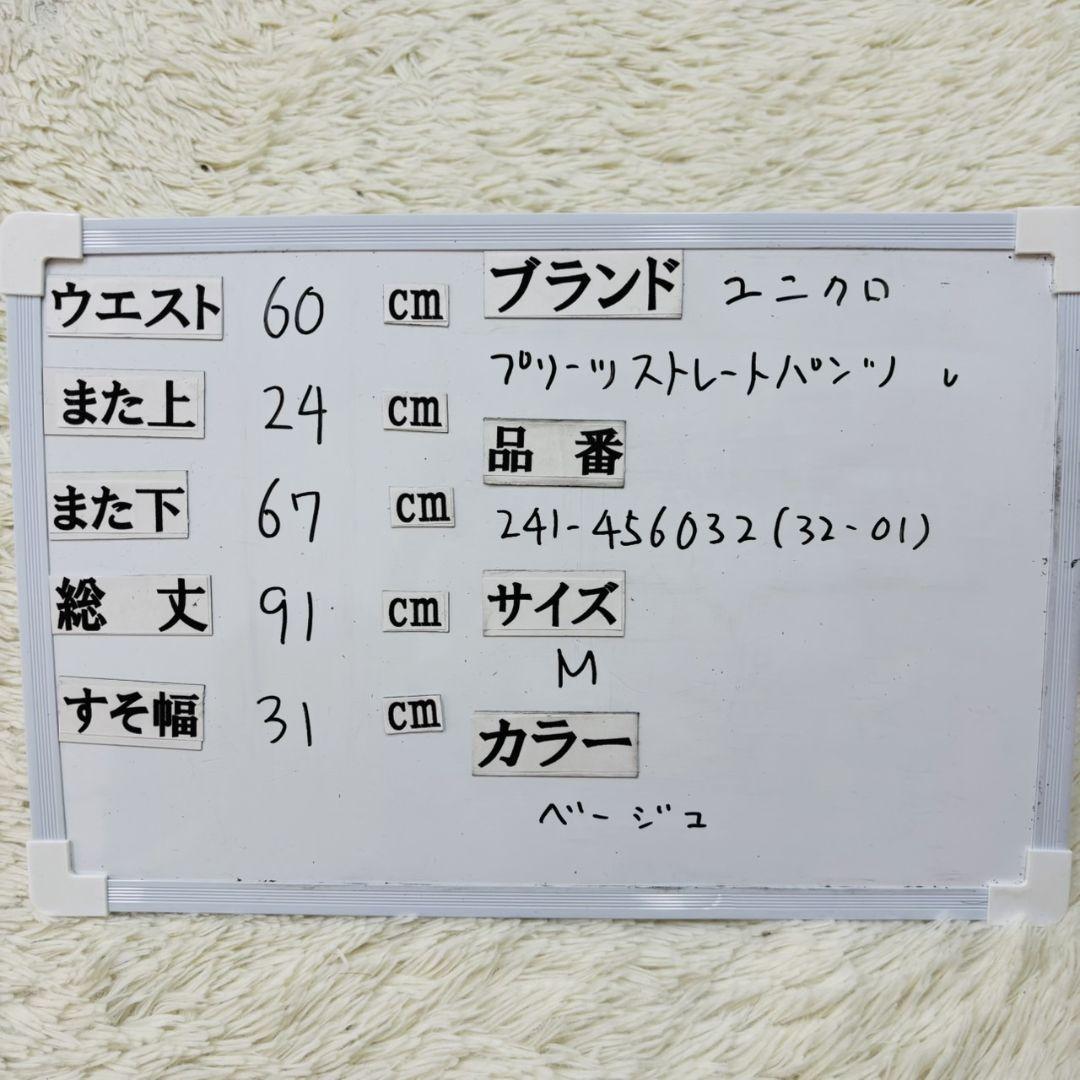 ウエスト 60 cm
また上 24 cm
また下 67 cm
総 丈 91 cm
すそ幅 31 cm
ブランド ユニクロ
プリーツストレートパンツ レ
品 番
241-456032(32-01)
サイズ
M
カラー
ベージュ